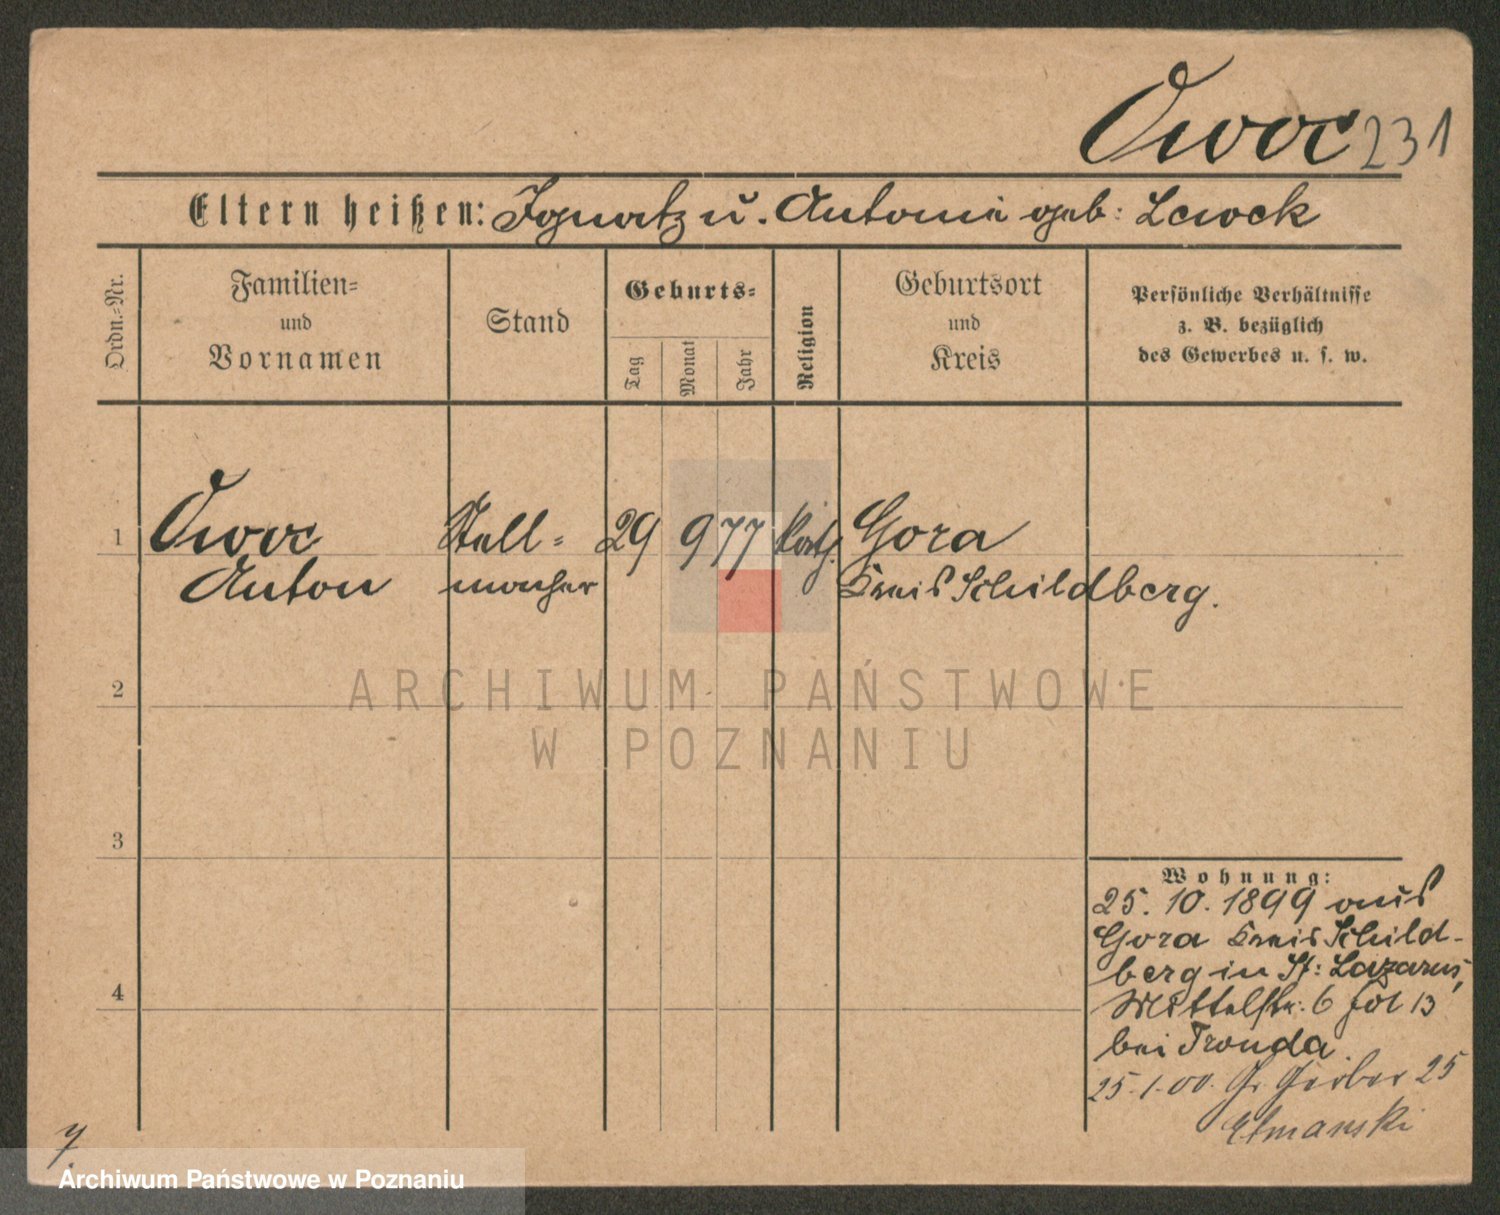 Owoc 231
Eltern heißen: Ignatz u. Antonie geb: Lawock
Ordn.=Nr.
Familien=
und
Vornamen
Stand
Geburts=
Tag
Monat
Jahr
Religion
Geburtsort
und
Kreis
Persönliche Verhältnisse
z. B. bezüglich
des Gewerbes u. s. w.
1 Owoc Stell= 29 9 77 kath. Gora
Anton macher Kreis Schildberg.
2
ARCHIWUM PAŃSTWOWE
W POZNANIU
3
Wohnung:
25. 10. 1899 aus
Gora Kreis Schild-
berg in St: Lazarus,
4
Mittelstr. 6 fol 13
bei Tronda.
25.1.00. Gr Gerber 25
Etmanski
7.
Archiwum Państwowe w Poznaniu